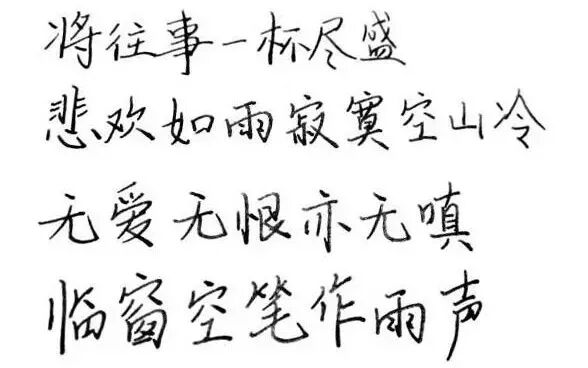 将往事一杯尽盛
悲欢如雨寂寞空山冷
无爱无恨亦无嗔
临窗空笔作雨声